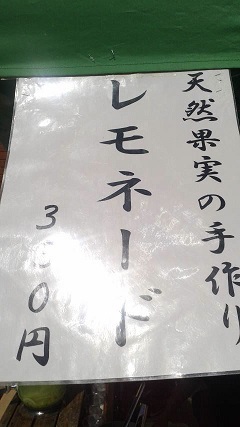 天然果実の手作り
レモネード
300円